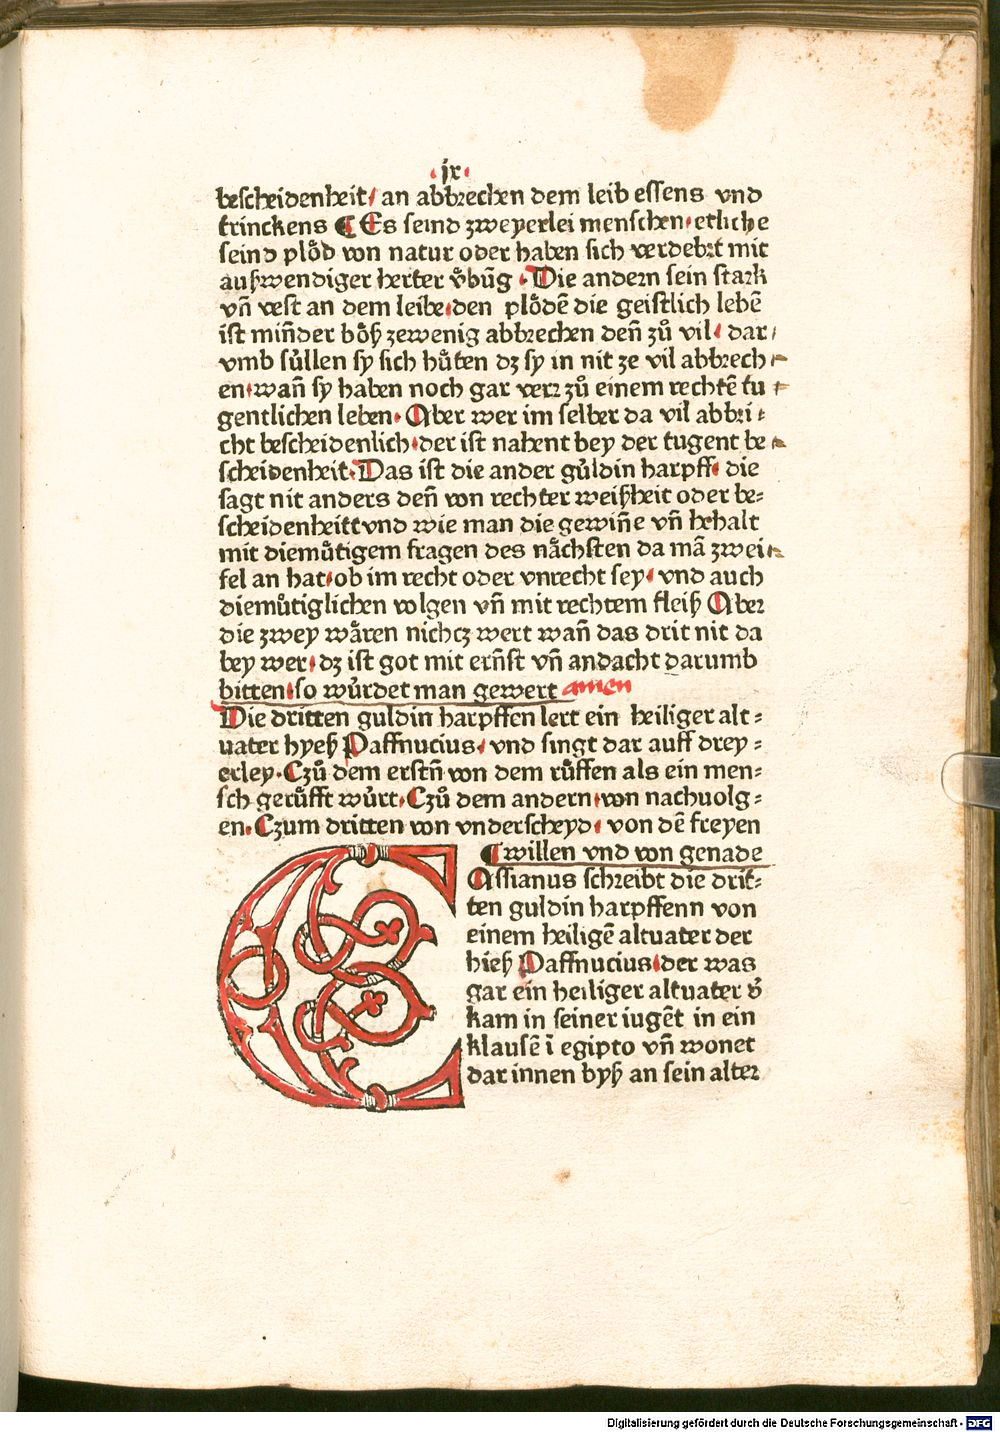 ·ix·
bescheidenheit / an abbrechen dem leib essens vnd
trinckens ¶ Es seind zweyerlei menschen · etliche
seind plöd von natur oder haben sich verdebrt mit
außwendiger herter vͤbūg · Die andern sein stark
vn̄ vest an dem leibe · den plödē die geistlich lebē
ist min̄der böß zewenig abbrechen den̄ zů vil · dar/
vmb sůllen sy sich hůten dz sy in nit ze vil abbrech-
en · wan̄ sy haben noch gar verr zů einem rechtē tu-
gentlichen leben · Aber wer im selber da vil abbri-
cht bescheidenlich · der ist nahent bey der tugent be-
scheidenheit · Das ist die ander gůldin harpff · die
sagt nit anders den̄ von rechter weißheit oder be=
scheidenheitt vnd wie man die gewin̄e vn̄ behalt
mit diemůtigem fragen des nächsten da mā zwei-
fel an hat · ob im recht oder vnrecht sey · vnd auch
diemůtiglichen volgen vn̄ mit rechtem fleiß Aber
die zwey wären nichcz wert wan̄ das drit nit da
bey wer · dz ist got mit ern̄st vn̄ andacht darumb
bitten · so wůrdet man gewert amen
Die dritten guldin harpffen lert ein heiliger alt=
uater hyeß Paffnucius · vnd singt dar auff drey=
erley · Czů dem erstn̄ von dem růffen als ein men=
sch gerůfft wůrt · Czů dem andern · von nachuolg=
en · Czum dritten von vnderscheyd · von dē freyen
¶ willen vnd von genade
CAssianus schreibt die drit=
ten guldin harpffenn von
einem heiligē altuater der
hieß Paffnucius · der was
gar ein heiliger altuater v̄
kam in seiner iugēt in ein
klausē ī egipto vn̄ wonet
dar innen byß an sein alter
Digitalisierung gefördert durch die Deutsche Forschungsgemeinschaft - DFG